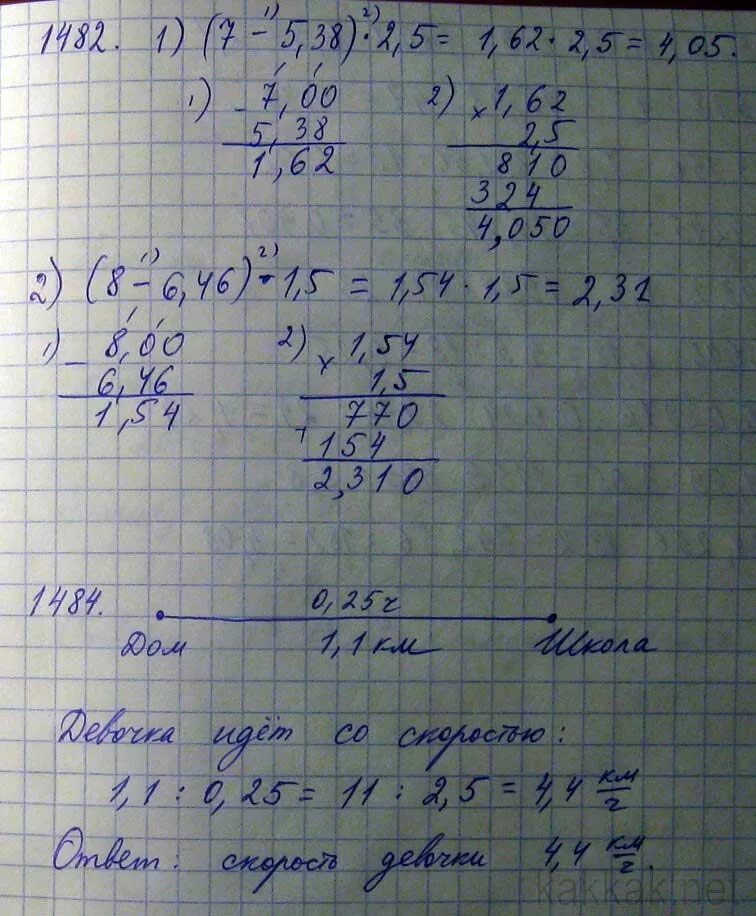 1482. 1) (7 - 5,38) · 2,5 = 1,62 · 2,5 = 4,05.
1) 2)
1) - 7,00
5,38
1,62
2) × 1,62
2,5
810
324
4,050
2) (8 - 6,46) · 1,5 = 1,54 · 1,5 = 2,31
1) 2)
1) - 8,00
6,46
1,54
2) × 1,54
1,5
770
+ 154
2,310
1484. 0,25 ч
Дом 1,1 км Школа
Девочка идёт со скоростью:
1,1 : 0,25 = 11 : 2,5 = 4,4 км/ч
Ответ: скорость девочки 4,4 км/ч.
kakkak.net